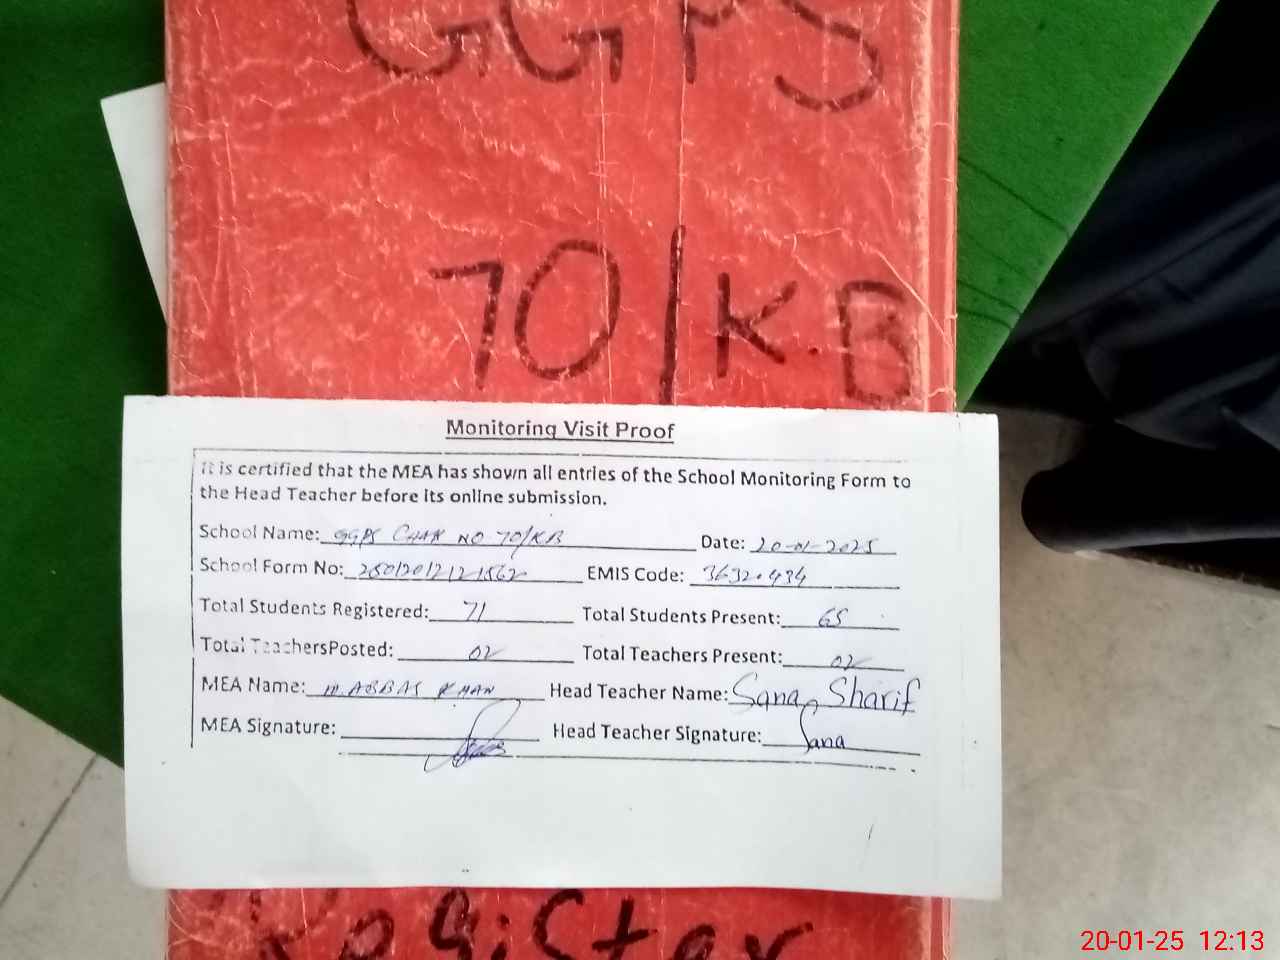 GGPS
70/K.B
Monitoring Visit Proof
It is certified that the MEA has shown all entries of the School Monitoring Form to
the Head Teacher before its online submission.
School Name: GGPS CHAK NO 70/KB Date: 20-01-2025
School Form No: EMIS Code:
Total Students Registered: 71 Total Students Present: 65
Total TeachersPosted: 02 Total Teachers Present: 02
MEA Name: M ABBAS KHAN Head Teacher Name: Sana Sharif
MEA Signature: Head Teacher Signature: Sana
Register
20-01-25 12:13